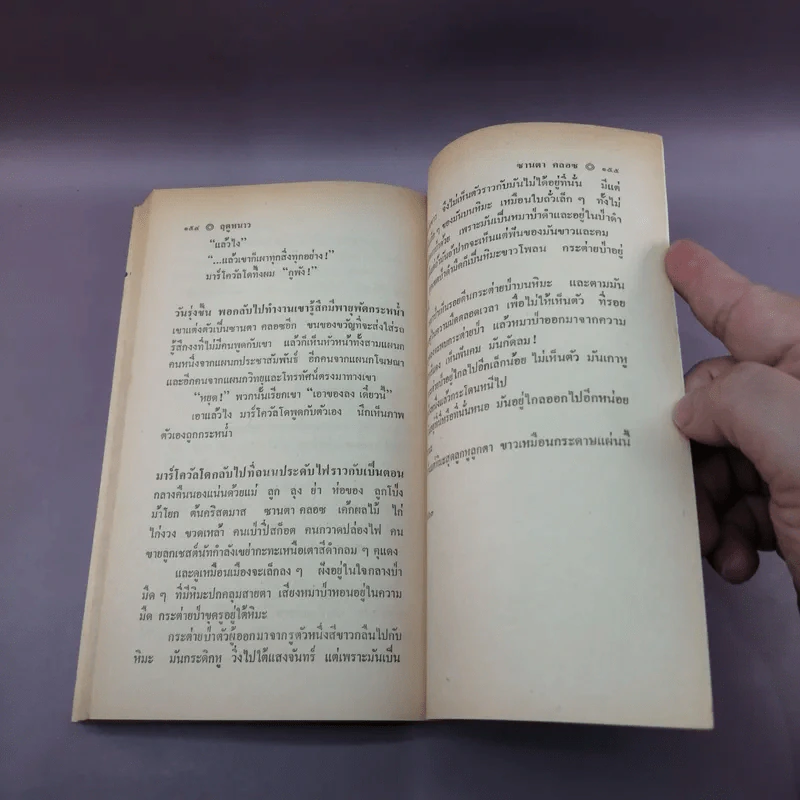 ๑๕๔ ๏ ฤดูหนาว
"แล้วไง"
"...แล้วเขาก็เผาทุกสิ่งทุกอย่าง!"
มาร์โควัลโดทึ้งผม "กูพัง!"
วันรุ่งขึ้น พอกลับไปทำงานเขารู้สึกมีพายุพัดกระหน่ำ
เขาแต่งตัวเป็นซานตา คลอซอีก ขนของขวัญที่จะส่งใส่รถ
รู้สึกงงที่ไม่มีคนพูดกับเขา แล้วก็เห็นหัวหน้าทั้งสามแผนก
คนหนึ่งจากแผนกประชาสัมพันธ์ อีกคนจากแผนกโฆษณา
และอีกคนจากแผนกวิทยุและโทรทัศน์ตรงมาทางเขา
"หยุด!" พวกนั้นเรียกเขา "เอาของลง เดี๋ยวนี้"
เอาแล้วไง มาร์โควัลโดพูดกับตัวเอง นึกเห็นภาพ
ตัวเองถูกกระหน่ำ
มาร์โควัลโดกลับไปที่ถนนประดับไฟราวกับเป็นตอน
กลางคืนนองแน่นด้วยแม่ ลูก ลุง ย่า ห่อของ ลูกโป่ง
ม้าโยก ต้นคริสตมาส ซานตา คลอซ เค้กผลไม้ ไก่
ไก่งวง ขวดเหล้า คนเป่าปี่สก็อต คนกวาดปล่องไฟ คน
ขายลูกเชสต์นัทกำลังเขย่ากะทะเหนือเตาสีดำกลม ๆ คุแดง
และดูเหมือนเมืองจะเล็กลง ๆ ฝังอยู่ในใจกลางป่า
มืด ๆ ที่มีหิมะปกคลุมสายตา เสียงหมาป่าหอนอยู่ในความ
มืด กระต่ายป่าขุดรูอยู่ใต้หิมะ
กระต่ายป่าตัวผู้ออกมาจากรูตัวหนึ่งสีขาวกลืนไปกับ
หิมะ มันกระดิกหู วิ่งไปใต้แสงจันทร์ แต่เพราะมันเป็น
ซานตา คลอซ ๏ ๑๕๕
จึงไม่เห็นตัวราวกับมันไม่ได้อยู่ที่นั้น มีแต่
ๆ ของมันบนหิมะ เหมือนใบถั่วเล็ก ๆ ทั้งไม่
เพราะมันเป็นหมาป่าดำและอยู่ในป่าดำ
จะเห็นแต่ฟันของมันขาวและคม
ก็เป็นหิมะขาวโพลน กระต่ายป่าอยู่
รอยตีนกระต่ายป่าบนหิมะ และตามมัน
ความมืดตลอดเวลา เพื่อไม่ให้เห็นตัว ที่รอย
กระต่ายป่า แล้วหมาป่าออกมาจากความ
แดง เห็นฟันคม มันกัดลม!
อยู่ใกลไปอีกเล็กน้อย ไม่เห็นตัว มันเกาหู
แล้วกระโดนหนีไป
ที่นั้นหนอ มันอยู่ใกลออกไปอีกหน่อย
สุดลูกหูลูกตา ขาวเหมือนกระดาษแผ่นนี้